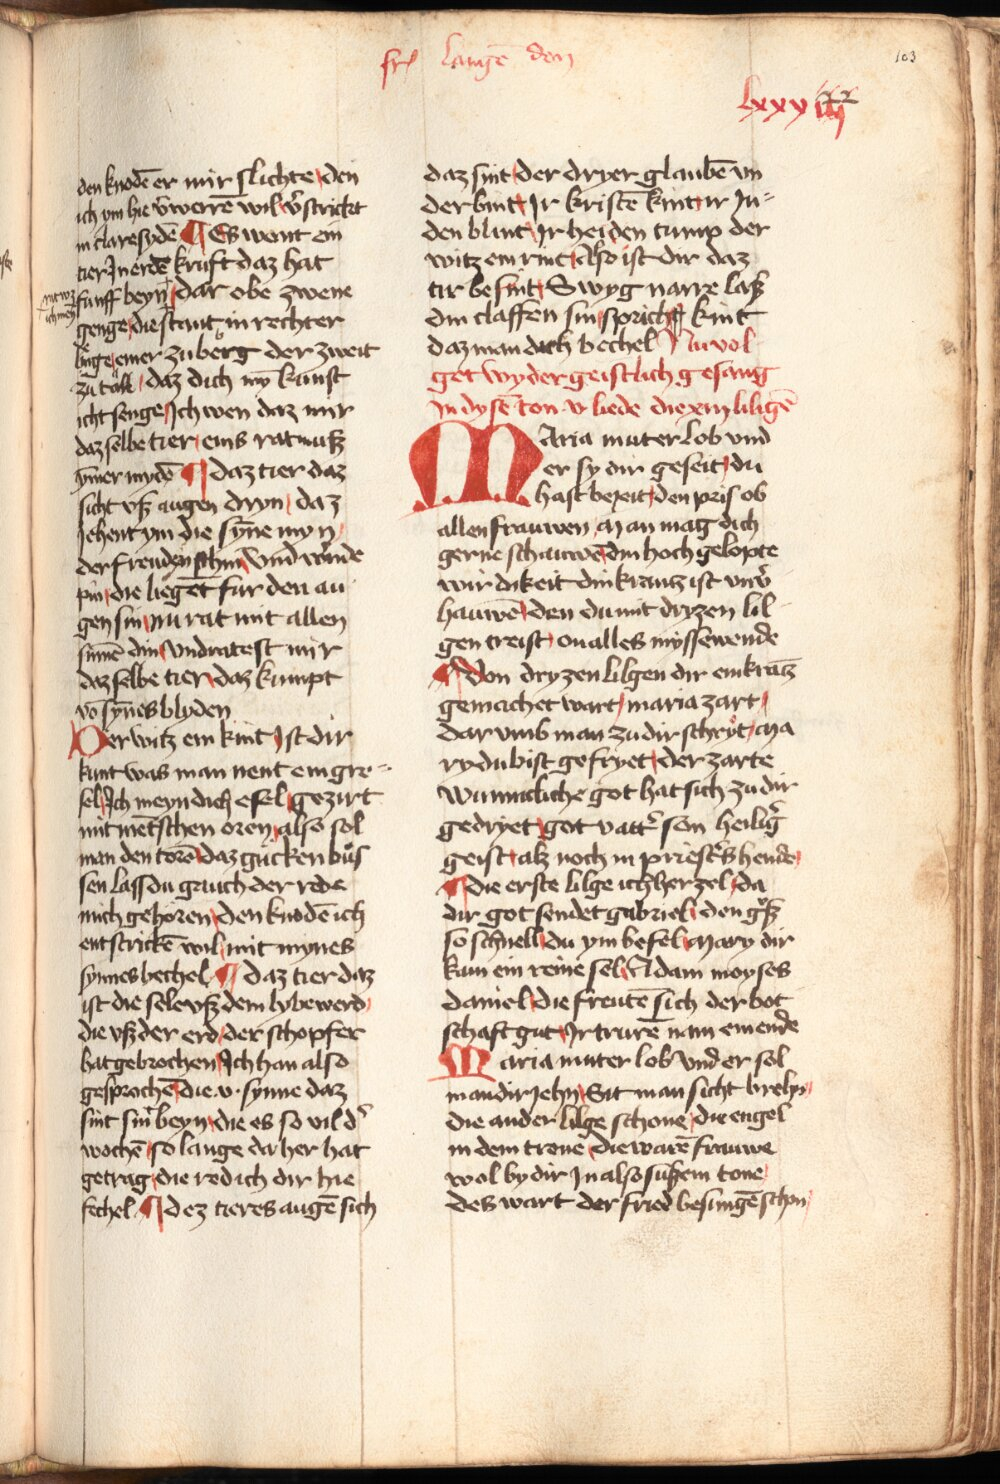 fr langē don
103
lxxxiiij
den knodē er mir slichte den
ich ym hie v̓werrē wil v̓strickt
in claresydē ¶ Es wont ein
tier In erdē kruft daz hat
funff beyn dar obe zwene
genge die stant in rechter
lenge einer zu berg der zweit
zu tal daz dich my kunst
icht senge Ich wen daz mir
daz selbe tier eins rat muß
ȳmer mydē ¶ daz tier daz
sicht vß augen dryn daz
Jehent ym die syne myn
der freuden schin vnd wūde
pin die liegēt fur den au
gen sin nu rat mit allen
sinnē din vnd ratest mir
daz selbe tier daz kumpt
vō synes blyden
Der witz ein kint Ist dir
kunt was man nent ein gre-
sel Ich meyn dich esel gezirt
mit mētschen oren also sol
man den torē daz gucken bus
sen lass du gauch der rede
mich gehoren den knodē ich
entstrickē wil mit mynes
synnes bechel ¶ daz tier daz
ist die sele vß dem lybe werd
die vß der erd der schopfer
hat gebrochen Ich han also
gesprochē die .v. synne daz
sint sin beyn die es so vil d̓
wochē so lange da her hat
getrag die red ich dir hie
fechel ¶ dez tieres augē sich
daz sint der dryer glaubē vn
der bint Ir kristē kint ir Ju-
den blint Ir heiden tump der
witz ein rint Also ist dir daz
tir besint Swyg narre laß
din claffen sin sprich kint
daz man dich bechel Nu vol
get wyder geistlich gesang
In dysē ton v liede die xiij liligē
Maria muter lob vnd
er sy dir geseit du
hast bezeit den pris ob
allen frauwen Man mag dich
gerne schauwē din hoch gelopte
wirdikeit din krantz ist vnv̓
hauwē den du mit dryzen lil
gen treist on alles myssewende
¶ Von dryzen lilgen dir ein krātz
gemachet wart maria zart
dar vmb man zu dir schryt Ma
ry du bist gefryet der zarte
wunnicliche got hat sich zu dir
gedryet got vatt̓ son heilig̓
geist als noch in priest̓s hende
¶ die erste lilge ich herzel da
dir got sendet gabriel den gruß
so schnell du ym befel Mary dir
kam ein reine sel Adam moyses
daniel die freutē sich der bot
schaft gut Ir trurē nam ein ende
Maria muter lob vnd er sol
man dir Jehn Sit man sicht brehn
die ander lilge schone die engel
in dem trone die warē frauwe
wol by dir In also sußem tone
des wart der fried besungē schon